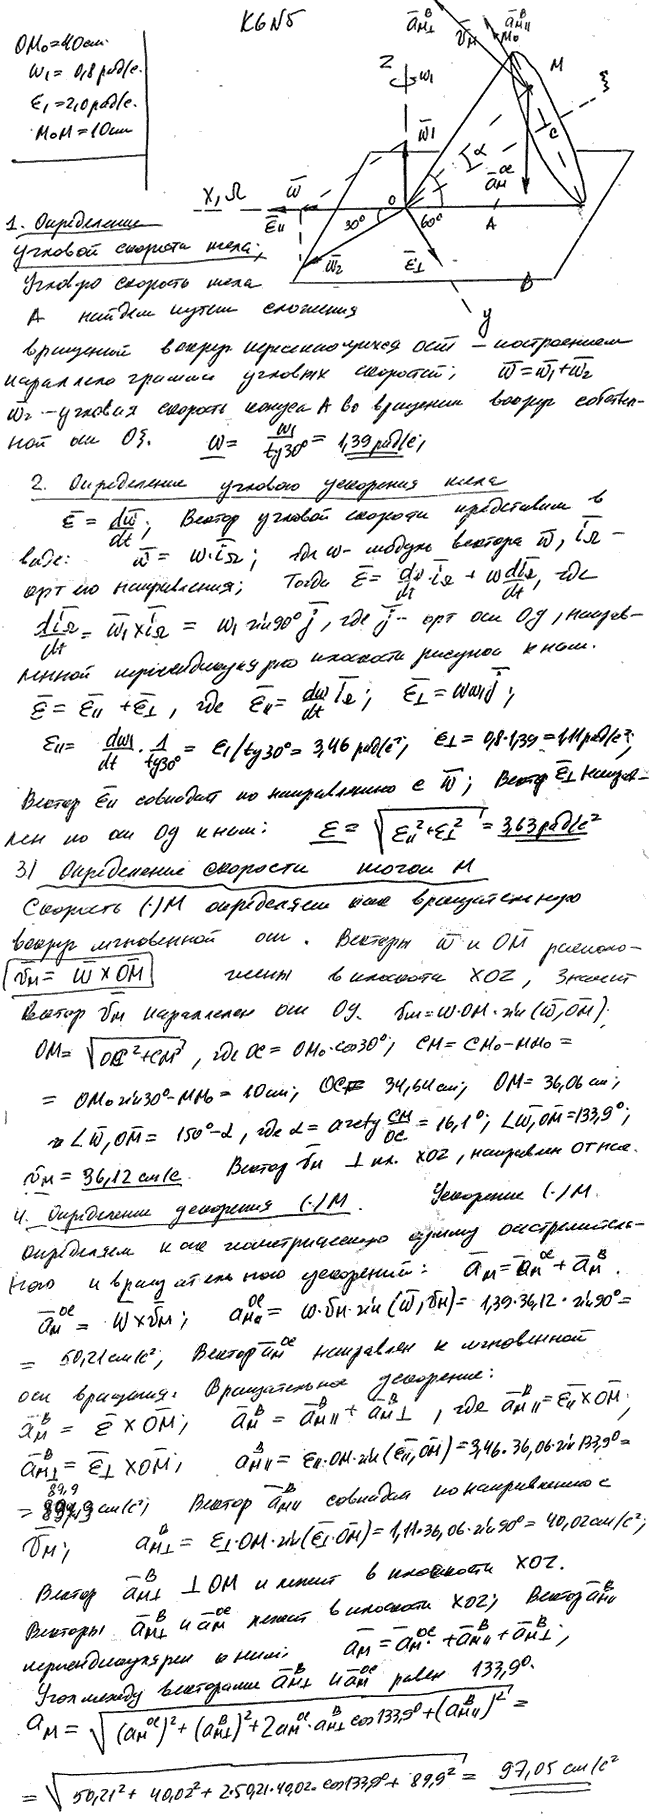 К6N5
OM₀=40см.
ω₁= 0,8 рад/с.
ε₁=2,0 рад/с.
M₀M=10см
1. Определение
угловой скорости тела;
Угловую скорость тела
А найдем путем сложения
вращений вокруг пересекающихся осей – построением
параллелограмма угловых скоростей; ω̅=ω̅₁+ω̅₂
ω̅₂ – угловая скорость конуса А во вращении вокруг собствен-
ной оси Оξ. ω = ω₁/tg30° = 1,39 рад/с;
2. Определение углового ускорения тела
ε̅ = dω̅/dt; Вектор угловой скорости представим в
виде: ω̅ = ω·i̅Ω; где ω- модуль вектора ω̅, i̅Ω –
орт по направления; Тогда ε̅= dω/dt·i̅Ω + ω di̅Ω/dt, где
di̅Ω/dt = ω̅₁×i̅Ω = ω₁ sin90° j̅, где j̅ - орт оси Оy, направ-
ленной перпендикулярно плоскости рисунка к нам.
ε̅ = ε̅॥ + ε̅⊥, где ε̅॥ = dω/dt i̅Ω; ε̅⊥= ωω₁j̅;
ε॥= dω₁/dt · 1/tg30° = ε₁/tg30°= 3,46 рад/с²; ε⊥= 0,8·1,39=1,11 рад/с²;
Вектор ε̅॥ совпадает по направлению с ω̅; Вектор ε̅⊥ направ-
лен по оси Оy к нам: ε = √(ε॥²+ε⊥²) = 3,63 рад/с²
3) Определение скорости точки М
Скорость (·)М определяем как вращательную
вокруг мгновенной оси. Векторы ω̅ и OM̅ располо-
v̅м = ω̅ × OM̅ жены в плоскости XOZ, значит
Вектор v̅м параллелен оси Оу. vм=ω·OM·sin(ω̅,OM̅);
OM= √(OC²+CM²), где OC = OM₀·cos30°; CM = CM₀-MM₀ =
= OM₀ sin30°-MM₀ = 10см; OC= 34,64см; OM= 36,06 см;
∠ω̅,OM̅ = 150°-α, где α=arctg CM/OC = 16,1°; ∠ω̅,OM̅=133,9°;
vм = 36,12 см/с. Вектор v̅м ⊥ пл. XOZ, направлен от нас.
4. Определение ускорения (·)М. Ускорение (·)М.
определяем как геометрическую сумму осестремитель-
ного и вращательного ускорений: a̅м = a̅м^ос + a̅м^в.
a̅м^ос = ω̅×v̅м; aм^ос = ω·vм·sin(ω̅,v̅м) = 1,39·36,12·sin90°=
= 50,21см/с²; Вектор a̅м^ос направлен к мгновенной
оси вращения. Вращательное ускорение:
a̅м^в = ε̅ × OM̅; a̅м^в = a̅м॥^в + a̅м⊥^в, где a̅м॥^в = ε̅॥×OM̅;
a̅м⊥^в = ε̅⊥×OM̅; aм॥^в = ε॥·OM·sin(ε̅॥,OM̅)=3,46·36,06·sin133,9°=
89,9
= см/с²; Вектор a̅м॥^в совпадает по направлению с
v̅м; aм⊥^в = ε⊥·OM·sin(ε̅⊥·OM̅)=1,11·36,06·sin90°= 40,02см/с²;
Вектор a̅м⊥^в ⊥ OM и лежит в плоскости XOZ.
Векторы a̅м⊥^в и a̅м^ос лежат в плоскости XOZ; Вектор a̅м॥^в
перпендикулярен к ним: a̅м = a̅м^ос + a̅м॥^в + a̅м⊥^в;
Угол между векторами a̅м⊥^в и a̅м^ос равен 133,9°.
aм = √((aм^ос)²+(aм⊥^в)²+2aм^ос·aм⊥^в cos133,9°+(aм॥^в)²) =
= √(50,21²+ 40,02²+2·50,21·40,02·cos133,9°+ 89,9²) = 97,05 см/с²
a̅м⊥^в
v̅м
a̅м॥^в
M₀
M
Z
ω₁
ξ
ω̅₁
α
C
a̅м^ос
X, Ω
ω̅
ε̅॥
30°
O
60°
A
ω̅₂
ε̅⊥
B
y